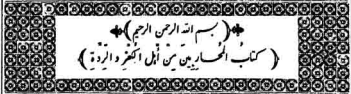 ﴿ بسم الله الرحمن الرحيم ﴾
﴿ كتاب المحاربين من أهل الكفر والردة ﴾